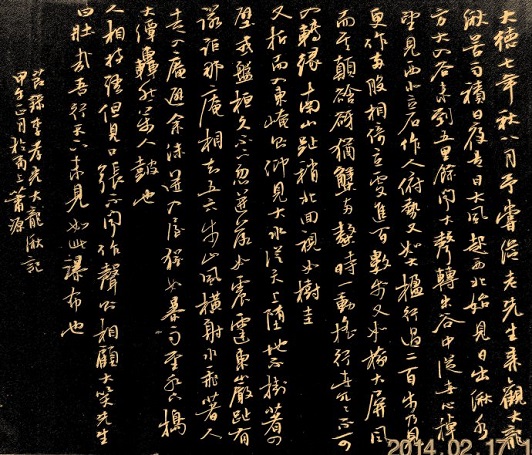 大德七年秋八月予嘗從老先生來觀大龍
湫苦雨積日夜是日大風起西北始見日出湫水
方大入谷未到五里餘聞大聲轉出谷中從者心掉
望見西北立石作人俯勢又如大楹行過二百步乃見
更作兩股相倚立更進百數步又如樹大屏風
而其顛谽谺猶蟹兩螯時一動搖行者兀兀不可
入轉緣南山趾稍北回視如樹圭
又折而入東崦則仰見大水從天上墮地不掛著四
壁或盤桓久不下忽迸落如震霆東巖趾有
諾詎那庵相去五六步山風橫射水飛著人
走入庵避余沫迸入屋猶如暴雨至水下搗
大潭轟然萬人鼓也
人相持語但見口張不聞作聲則相顧大笑先生
曰壯哉吾行天下未見如此瀑布也
錄李孝光大龍湫記
甲午正月於上蕭源
2014.02.17 1